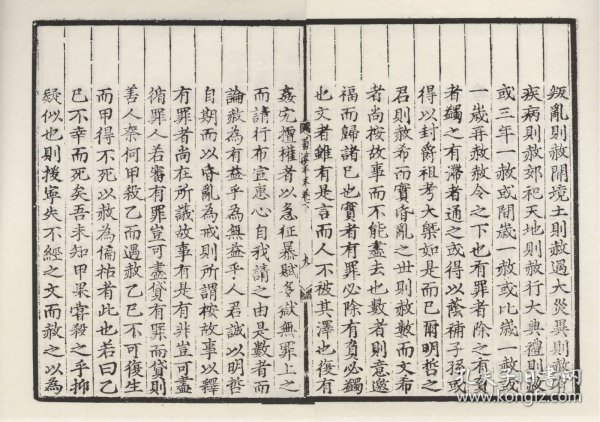 叛亂則赦開境土則赦遇大災異則赦有
疾病則赦郊祀天地則赦行大典禮則赦
或三年一赦或閒歲一赦或比歲一赦或
一歲再赦赦令之下也有罪者除之有負
者蠲之有滯者通之或得以蔭補子孫或
得以封爵祖考大槩如是而已爾明哲之
君則赦希而實昏亂之世則赦數而文希
者尚按故事而不能盡去也數者則意邀
福而歸諸已也實者有罪必除有負必蠲
也文者雖有是言而人不被其澤也後有
九
姦宄擅權者以急征暴賦多獄無罪上之
而請行布宣惠心自我請之由是數者而
論赦為有益乎為無益乎人君誠以明哲
自期而以昏亂為戒則所謂按故事以釋
有罪者尚在所議故事有是有非豈可盡
循罪人若審有罪豈可盡貸有罪而貸則
善人奈何甲殺乙而遇赦乙已不可復生
而甲得不死以赦為怙者此也若曰乙
已不幸而死矣吾未知甲果嘗殺之乎抑
疑似也則援寧失不經之文而赦之以為
孔夫子旧书网
kongfz.com